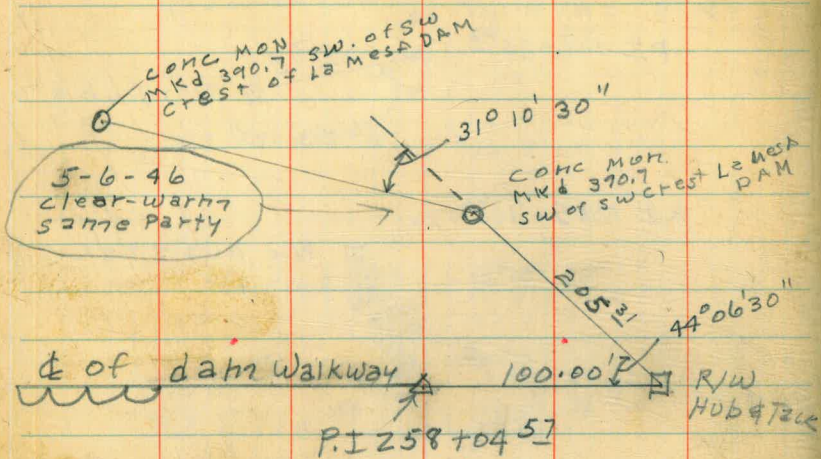 CONC MON SW. of SW
MKd 390.7
crest of La MESA DAM
31° 10' 30"
5-6-46
clear-warm
same Party
CONC MON.
MKd 390.7
SW of SW crest La MESA
DAM
205 31
44° 06' 30"
℄ of dam Walkway
100.00'
R/W
Hub & Tack
P.I 258+04 57